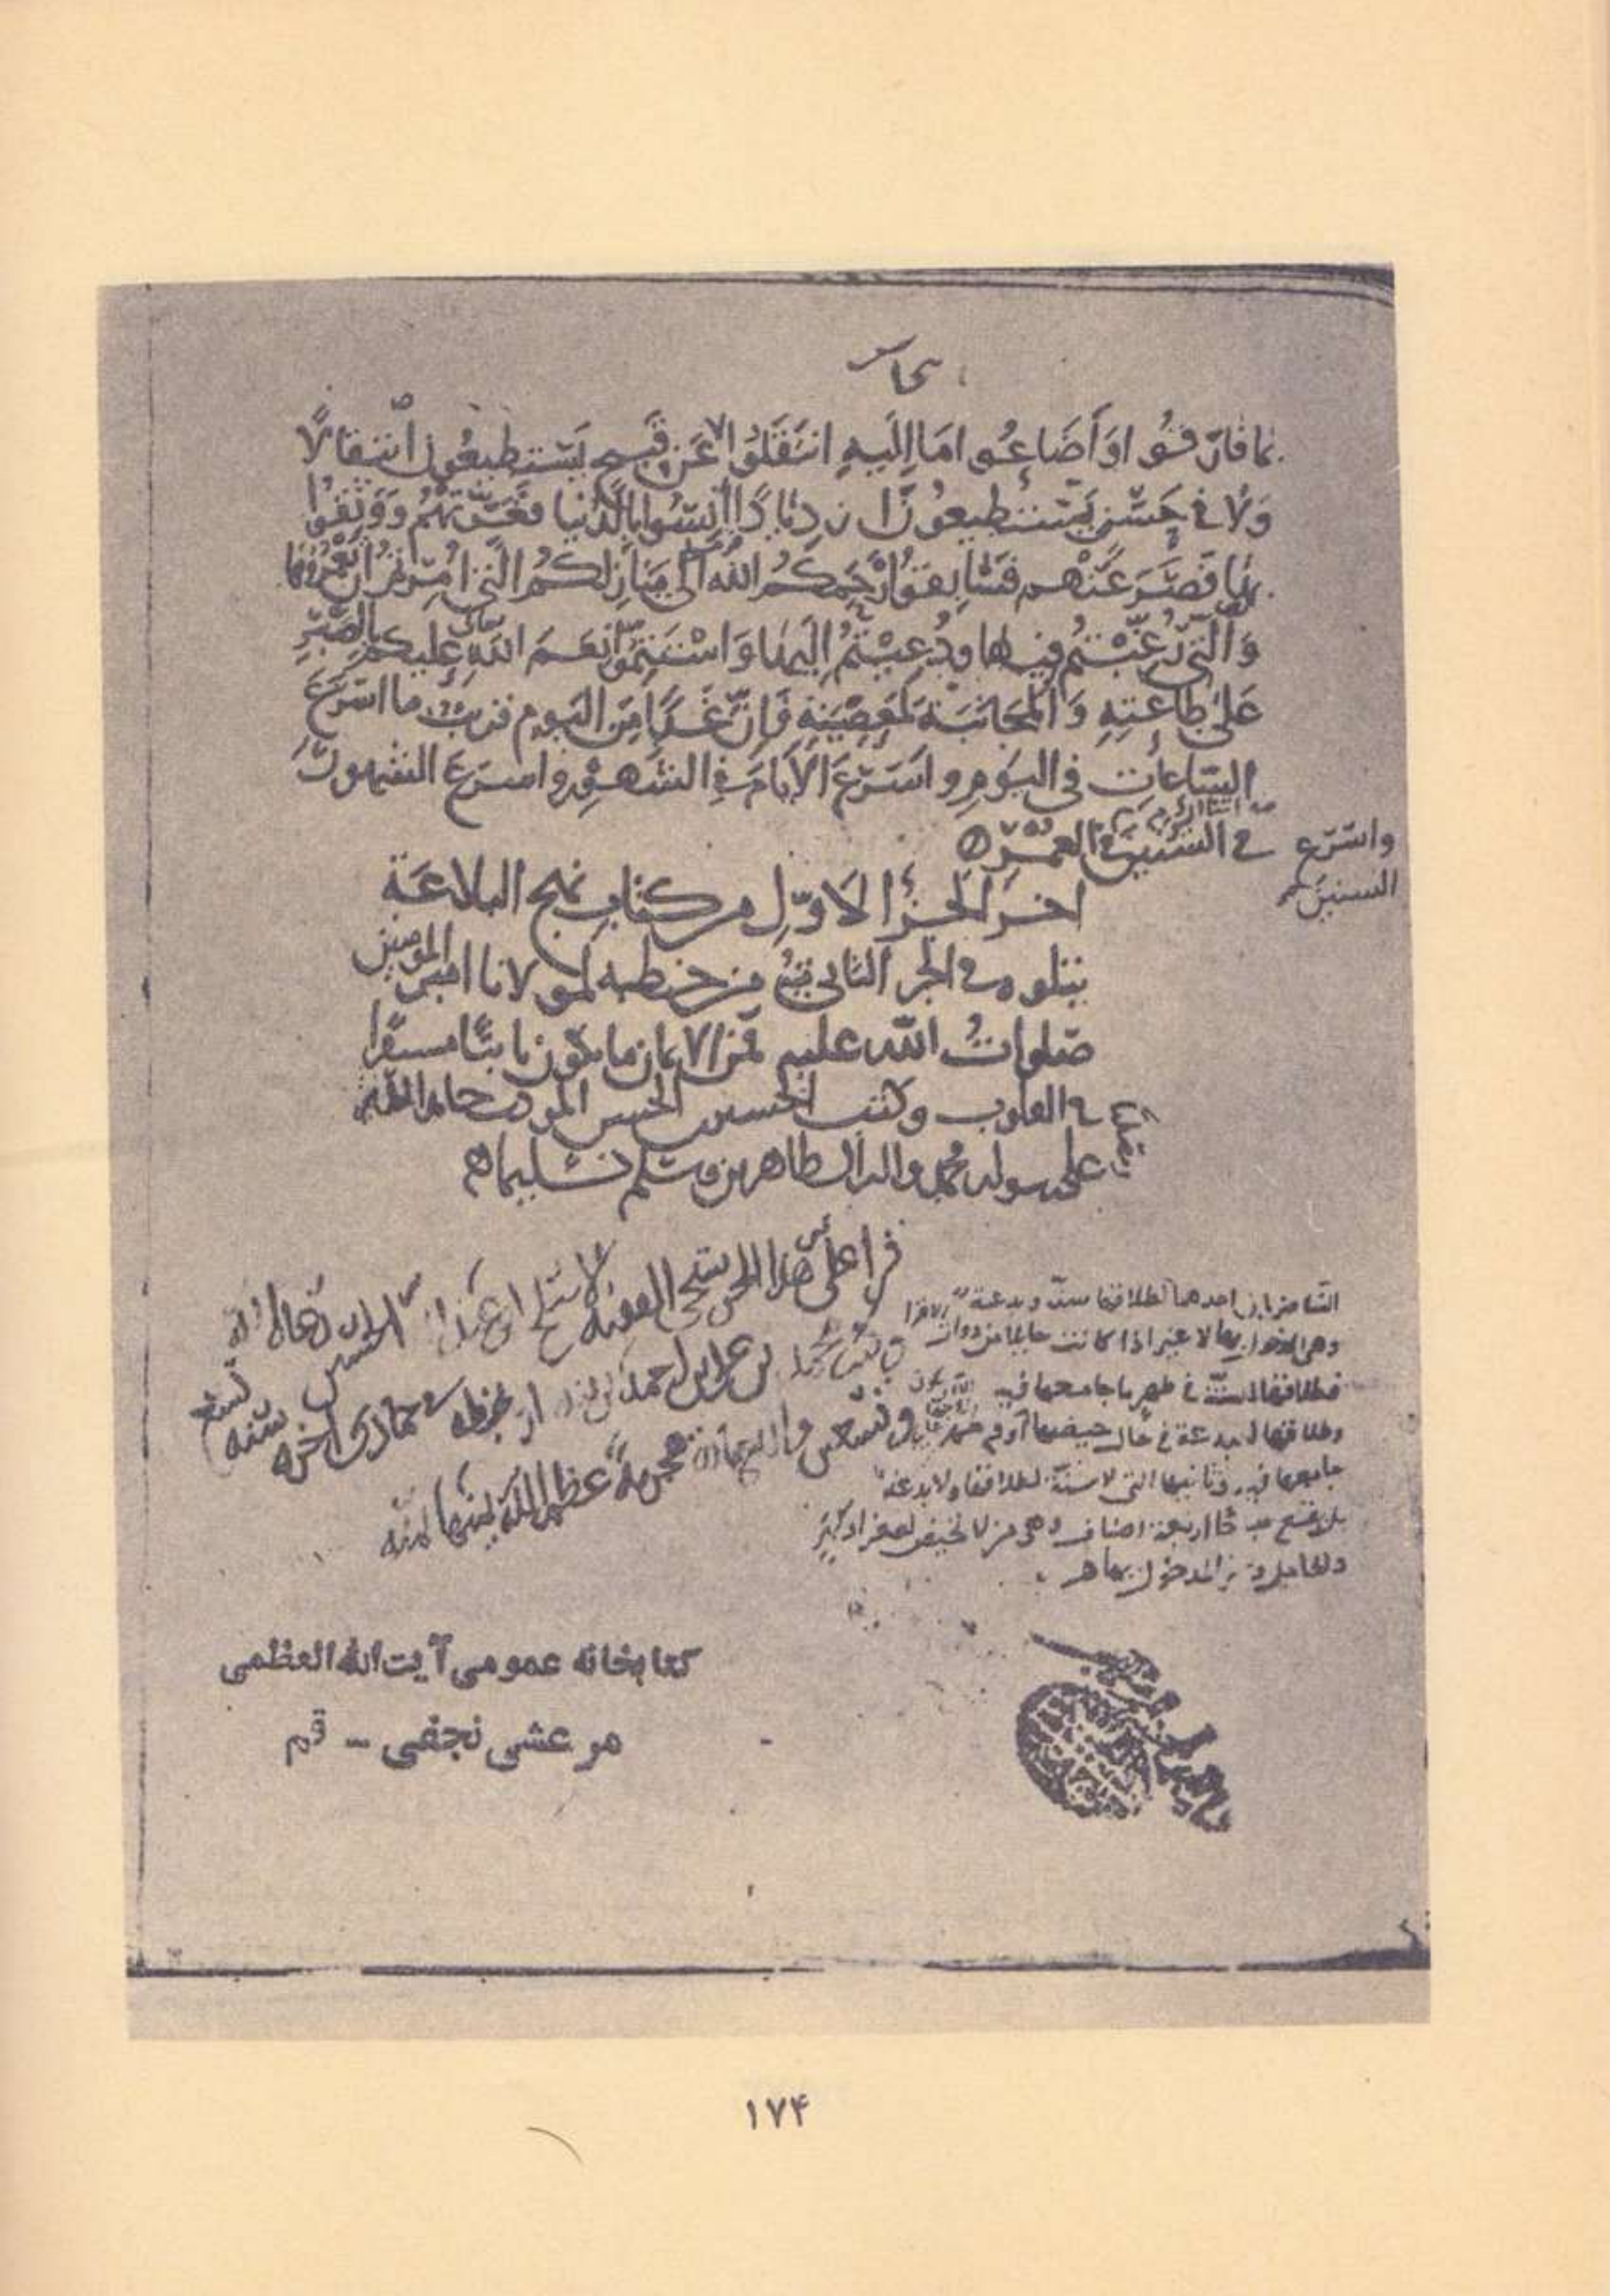 بما فارقوا وَأَضَاعُوا مَا إِلَيهِ انتَقَلُوا لا عَن قَبِيحٍ يَسْتَطِيعُون انتِقالًا
وَلا في حَسَنٍ يَسْتَطِيعُونَ ازديادًا أَنِسُوا بِالدُّنيا فَغَرَّتهُم وَوَثِقُوا
بها فَصَرَعَتْهم فَسابِقوا رَحِمَكُمُ اللهُ إلى مَنازِلكُمُ الَّتي أُمِرتُم أن تَعمُروها
وَالَّتي رُغِّبْتُم فيها ودُعِيتُم إلَيها وَاسْتَتِمّوا نِعَمَ اللهِ عَلَيكم بِالصَّبرِ
عَلى طاعَتِهِ وَالمُجانَبَة لِمَعصِيَتِهِ فَإنّ غَدًا مِنَ اليَوم قريبٌ ما اسْرَعَ
السّاعاتِ في اليَومِ واسْرَعَ الأيّامَ في الشهرِ واسرَعَ الشهورَ
في السنين في العُمُرِ
واسْرَع
السنينَ
اخرُ الجُزْءِ الأوّلِ من كتابِ نهج البلاغة
يتلوه في الجزء الثاني من خطبه لمولانا امير المومنين
صلواتُ اللّه عليه فمن الايمان ما يكون ثابتًا مستقرا
في القلوب وكتب الحسين بن الحسن المودب حامدا لله
على رسوله محمد واله الطاهرين وسلم تسليما
قرا على هذا الجزء شيخى الفقيه
محمد بن على بن احمد
بخطه في جمادى الاخرة سنة تسع
وتسعين واربعمائة هجرية عظم الله يمنها بمنه
النسا ضربان احدهما لطلاقها سنة وبدعة
وهى المدخول بها لا غير اذا كانت حايلا من ذوات الاقرا
فطلاقها للسنة في طهر ما جامعها فيه
وطلاقها لبدعة في حال حيضها او في طهر
جامعها فيه وثانيها التي لا سنة لطلاقها ولا بدعة
اربعة اصناف وهى من لا تحيض لصغر او كبر
والحامل وغير المدخول بها
كتابخانه عمومى آيت الله العظمى
مرعشى نجفى – قم
۱۷۴